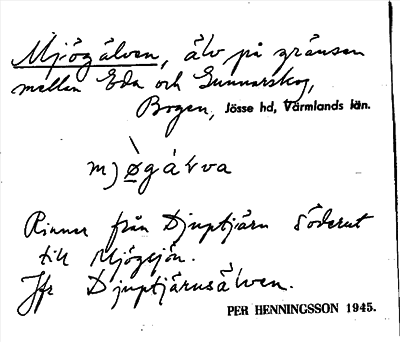 Mjögälven, älv på gränsen
mellan Eda och Gunnarskog,
Bogen, Jösse hd, Värmlands län.
mjøgälva
Rinner från Djuptjärn söderut
till Mjögsjön.
Jfr Djuptjärnsälven.
PER HENNINGSSON 1945.